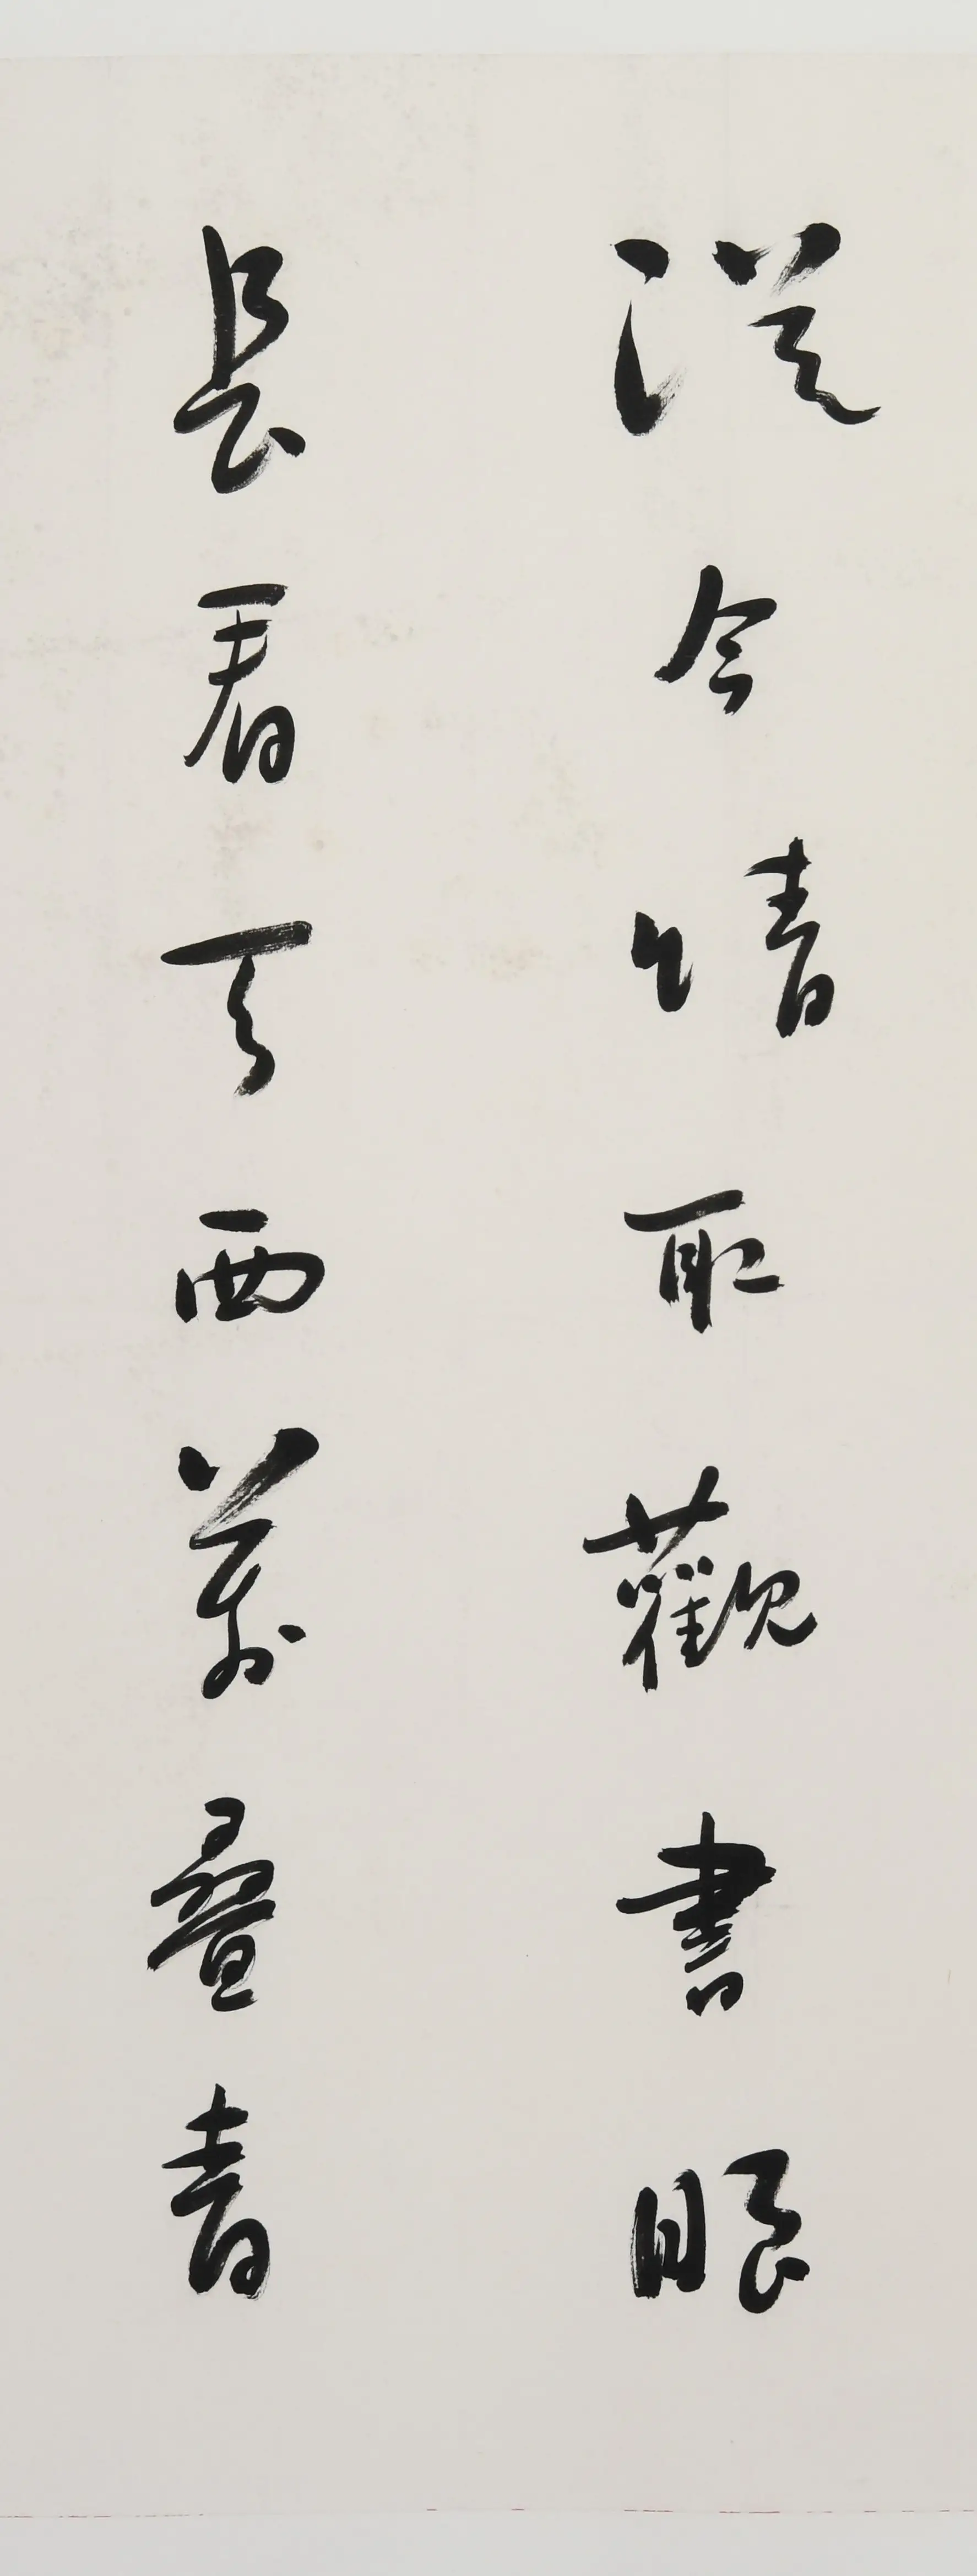 從今情取觀書眼
長看天西萬疊青